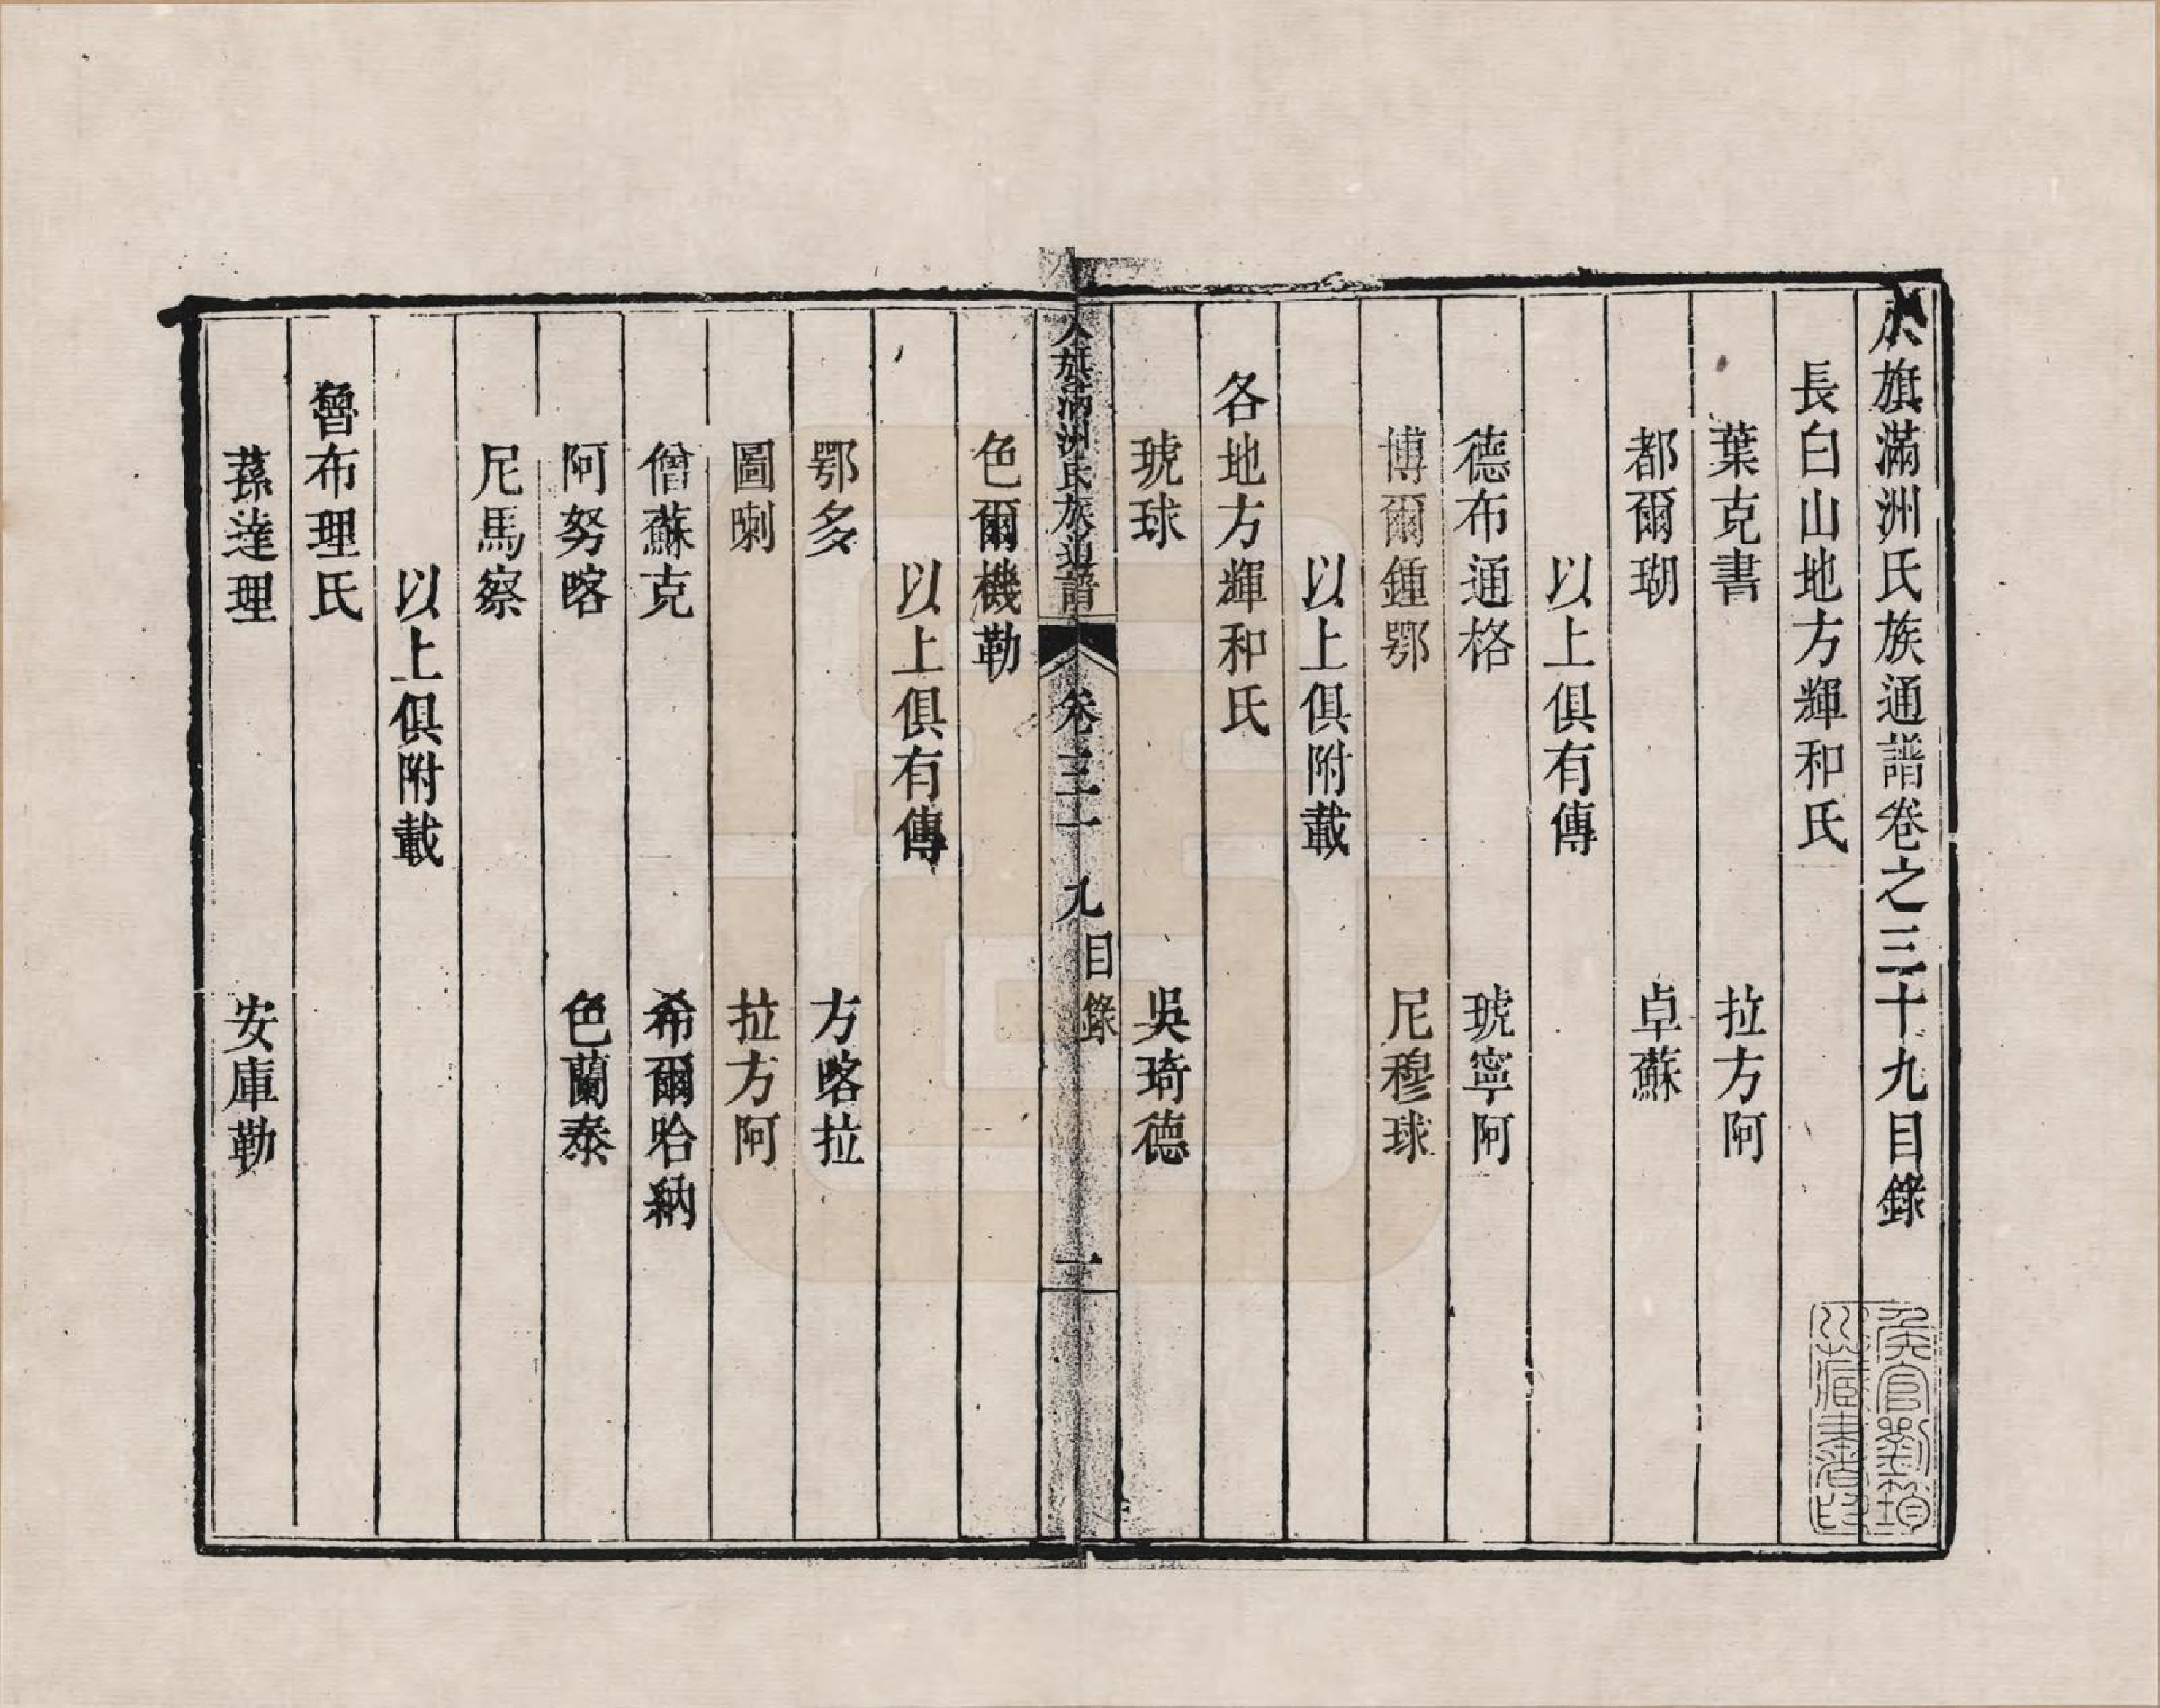 八旗滿洲氏族通譜卷之三十九目錄
長白山地方輝和氏
葉克書　拉方阿
都爾瑚　卓蘇
以上俱有傳
德布通格　琥寧阿
博爾鍾鄂　尼穆球
以上俱附載
各地方輝和氏
琥球　吳琦德
八旗滿洲氏族通譜　卷三十九　目錄　一
色爾機勒
以上俱有傳
鄂多　方喀拉
圖喇　拉方阿
僧蘇克　希爾哈納
阿努喀　色蘭泰
尼馬察
以上俱附載
魯布理氏
蓀達理　安庫勒
侯官劉筠
川藏書印